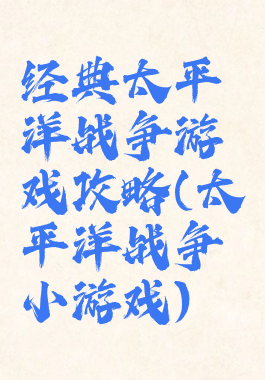 经典太平
洋战争游
戏攻略(太
平洋战争
小游戏)